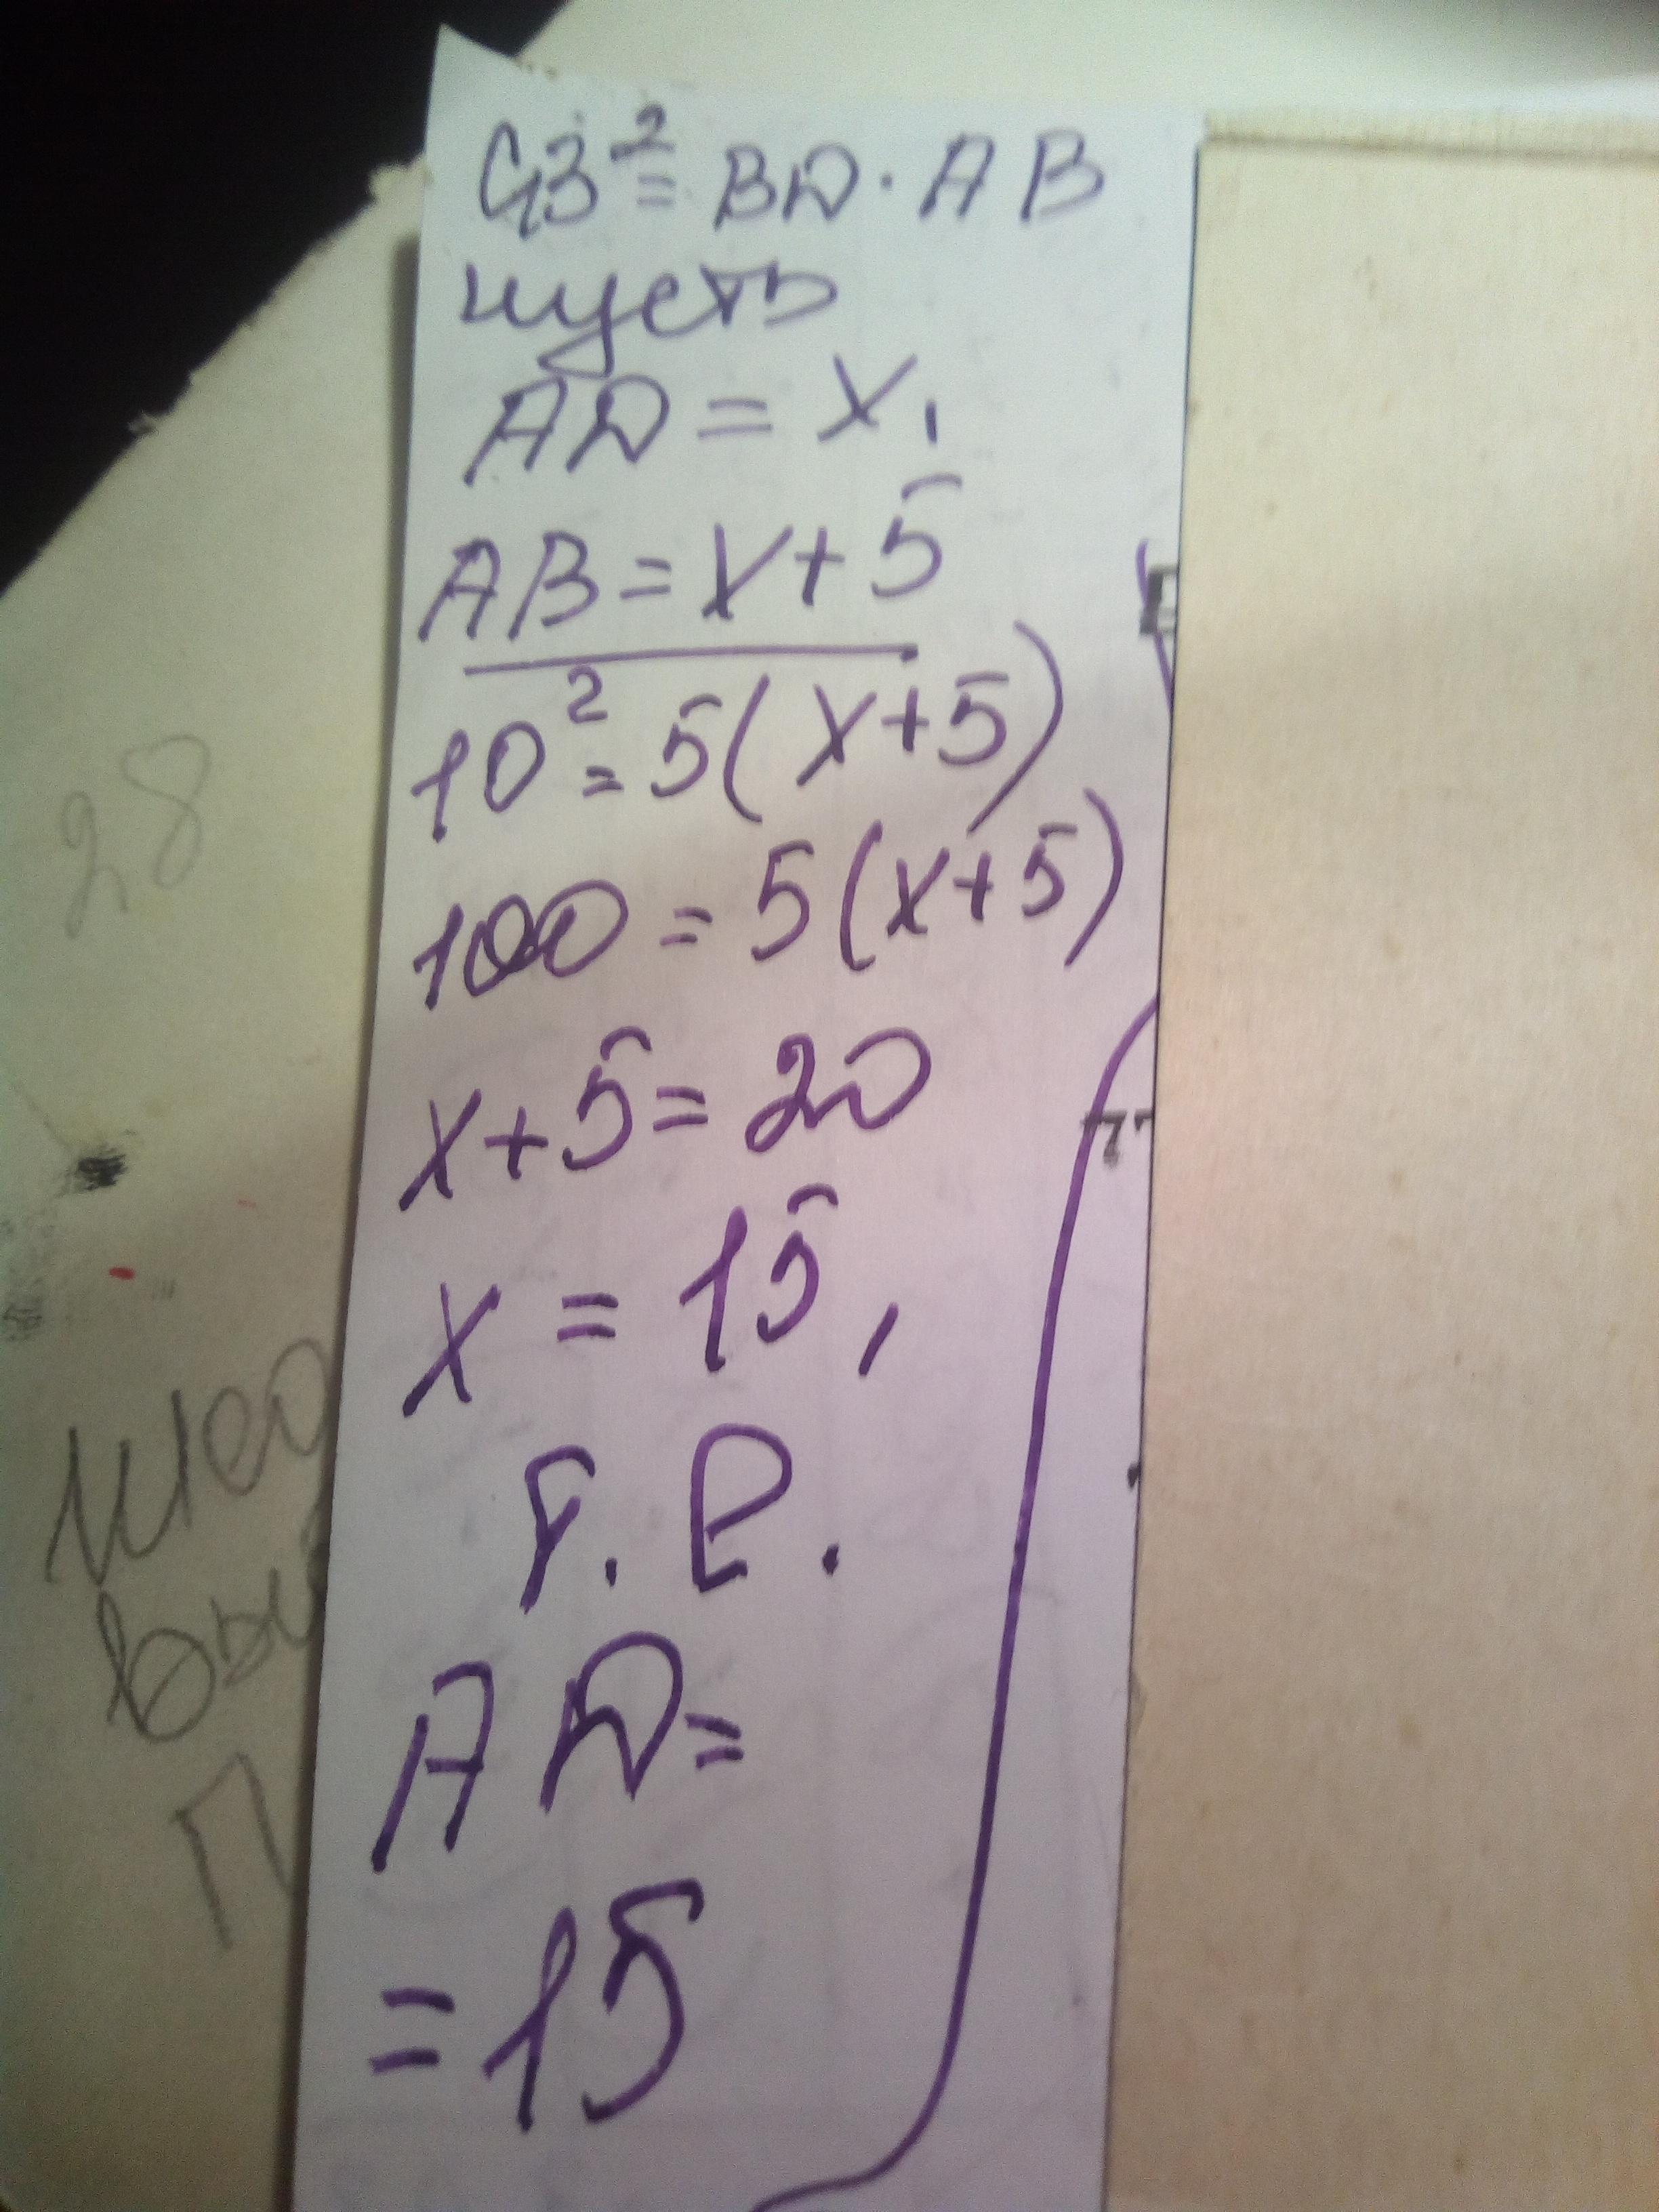 CB² = BD · AB
пусть
AD = x,
AB = x + 5
10² = 5(x+5)
100 = 5(x+5)
x+5 = 20
x = 15,
т. е.
AD =
= 15
28